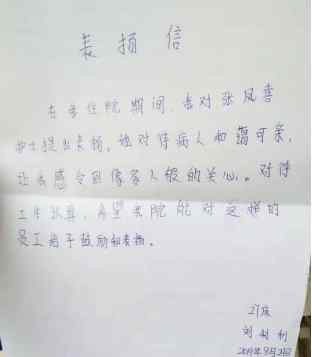 表扬信
在我住院期间,我对张凤喜
护士提出表扬。她对待病人和蔼可亲,
让我感令到像家人般的关心。对待
工作认真,希望贵院能对这样的
员工给予鼓励和表扬。
21床
刘剑利
2019年9月21日